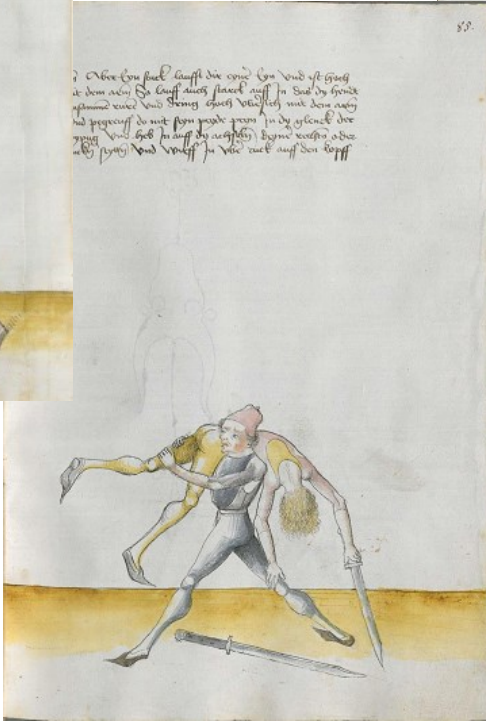 85.
Aber Eyn stuck laufft dir eyner Eyn vnd ist hoch
dem arm So lauff auch starck auff In das dy hende
rurer vnd dring hoch vbersich mit dem arm
pegreuff do mit seyn payde payn In dy glenck der
vnd heb In auff dy achsseln deyner rechten oder
seytten vnd wurff In vber ruck auff den kopff